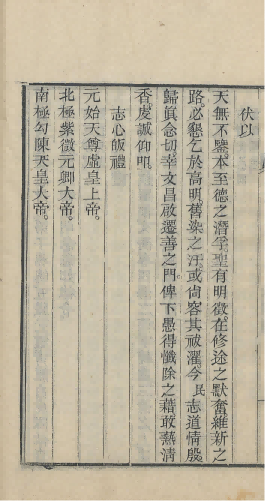 伏以
天無不鑒。本至德之潛孚。聖有明徵。在修途之默奮。維新之
路。必懇乞於高明。舊染之汙。或尚容其祓濯。今民志道情殷。
歸眞念切。幸文昌啟遷善之門。俾下愚得懺除之藉。敢爇清
香。虔誠仰叩。
志心皈禮
元始天尊虛皇上帝。
北極紫微元卿大帝。
南極勾陳天皇大帝。